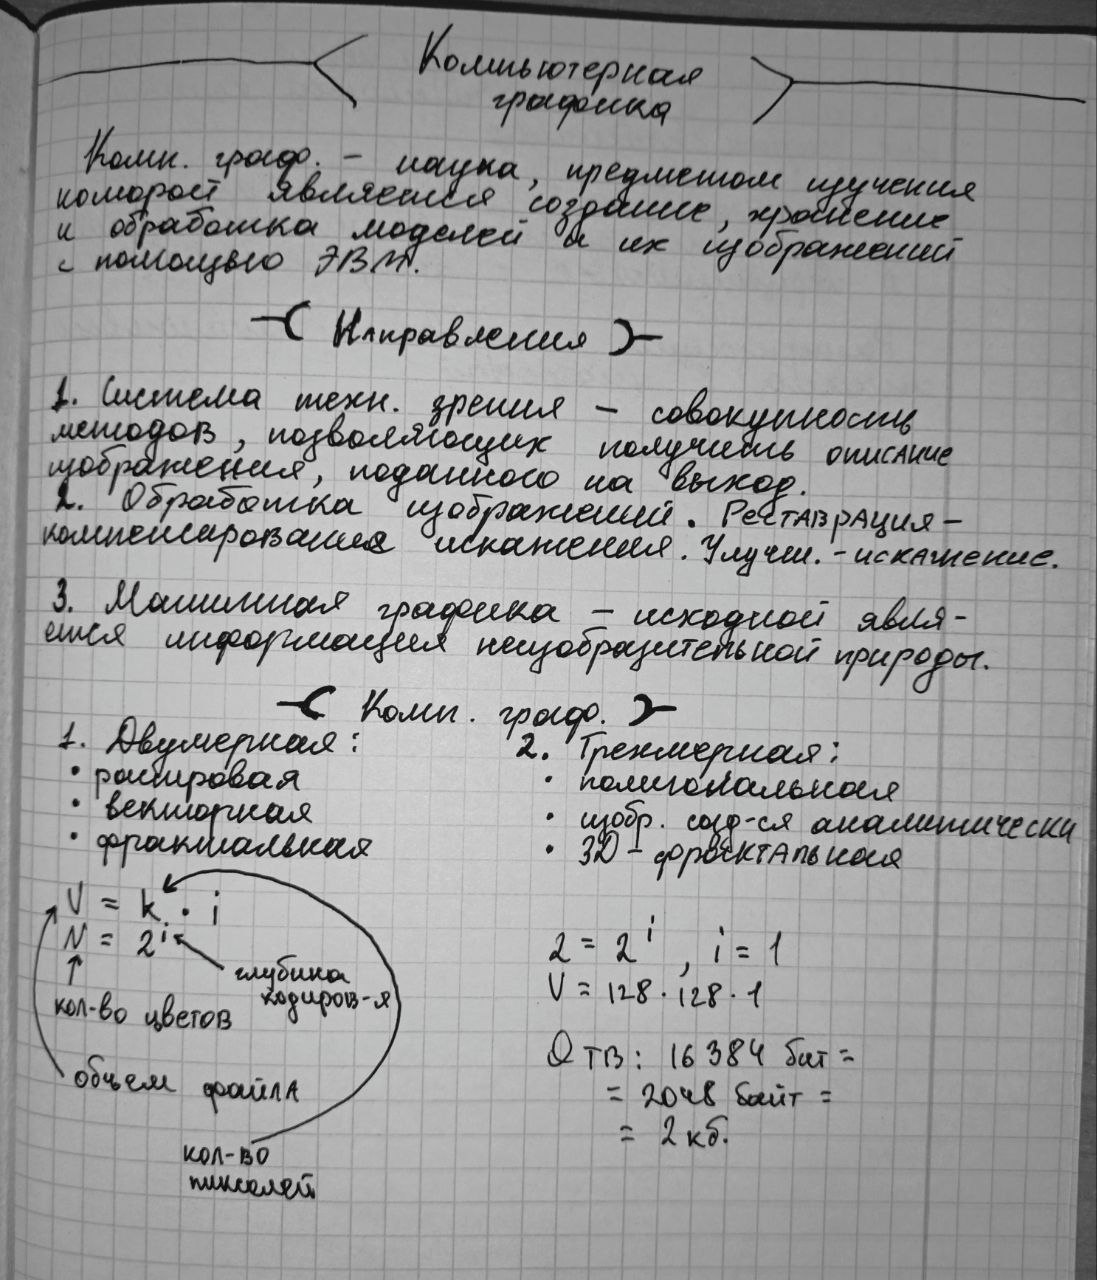 Компьютерная
графика
Комп. граф. – наука, предметом изучения
которой является создание, хранение
и обработка моделей и их изображений
с помощью ЭВМ.
Направления
1. Система техн. зрения – совокупность
методов, позволяющих получить описание
изображения, поданного на выход.
2. Обработка изображений. Реставрация –
компенсирования искажения. Улучш. - искажение.
3. Машинная графика – исходной явля-
ется информация неизобразительной природы.
Комп. граф.
1. Двумерная:
• растровая
• векторная
• фрактальная
2. Трехмерная:
• полигональная
• изобр. созд-ся аналитически
• 3D - фрактальная
V = k · i
N = 2^i
глубина
кодиров-я
кол-во цветов
объем файла
кол-во
пикселей
2 = 2^i, i = 1
V = 128 · 128 · 1
Отв: 16 384 бит =
= 2048 байт =
= 2 кб.